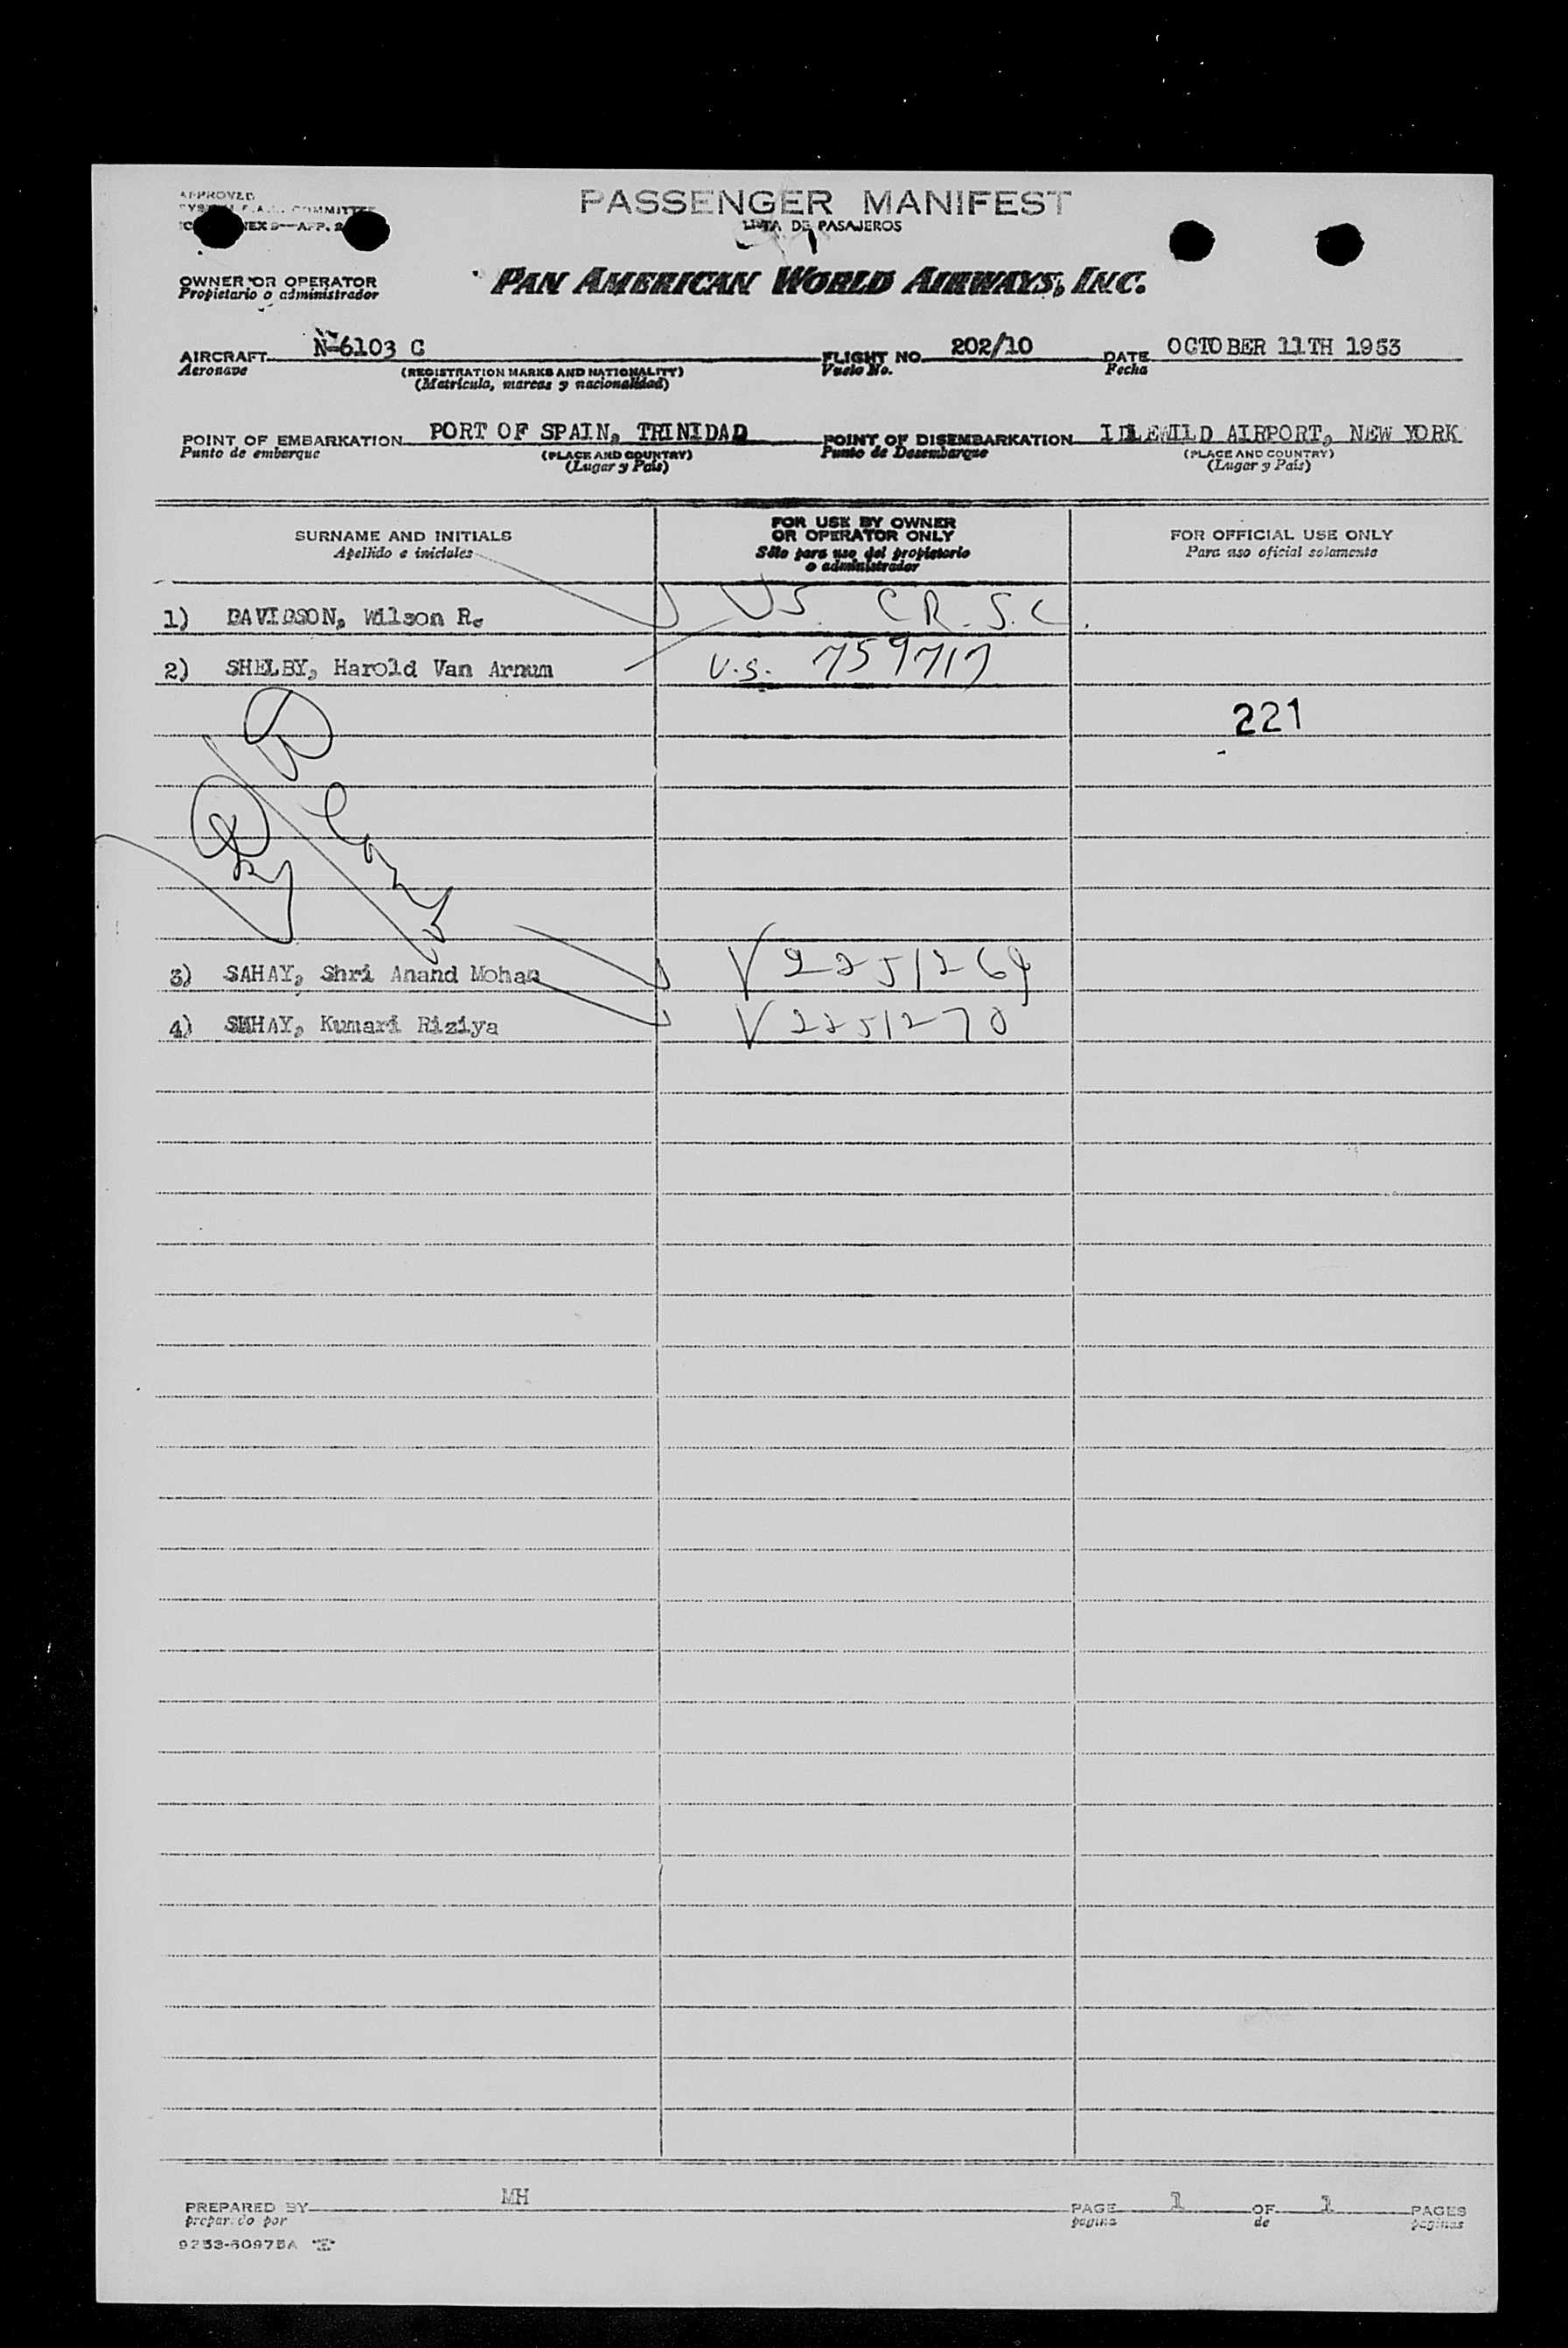 APPROVED
PASSENGER MANIFEST
LISTA DE PASAJEROS
OWNER OR OPERATOR
Propietario o administrador
PAN AMERICAN WORLD AIRWAYS, INC.
AIRCRAFT N-6103 C FLIGHT NO. 202/10 DATE OCTOBER 11TH 1953
Aeronave (REGISTRATION MARKS AND NATIONALITY) Vuelo No. Fecha
(Matrícula, marcas y nacionalidad)
POINT OF EMBARKATION PORT OF SPAIN, TRINIDAD POINT OF DISEMBARKATION IDLEWILD AIRPORT, NEW YORK
Punto de embarque (PLACE AND COUNTRY) Punto de Desembarque (PLACE AND COUNTRY)
(Lugar y País) (Lugar y País)
SURNAME AND INITIALS
Apellido e iniciales
FOR USE BY OWNER
OR OPERATOR ONLY
Sólo para uso del propietario
o administrador
FOR OFFICIAL USE ONLY
Para uso oficial solamente
1) DAVIDSON, Wilson R. US. C R. S. C.
2) SHELBY, Harold Van Arnum U.S. 759717
221
3) SAHAY, Shri Anand Mohan V 2251269
4) SAHAY, Kumari Riziya V 2251270
PREPARED BY MH PAGE 1 OF 1 PAGES
preparado por página de páginas
9253-60975A